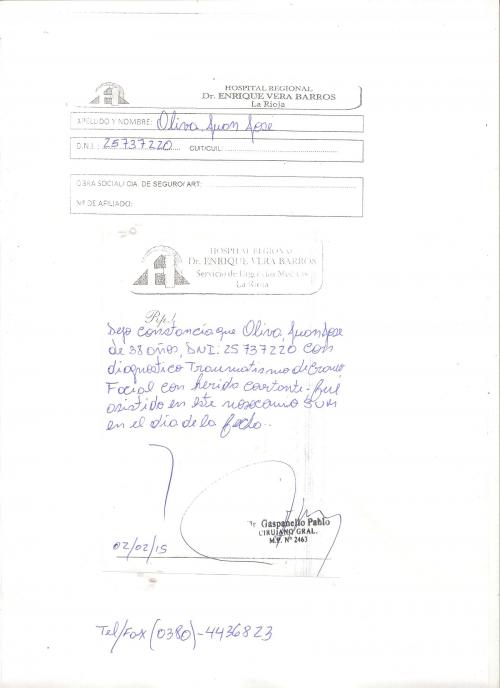 HOSPITAL REGIONAL
Dr. ENRIQUE VERA BARROS
La Rioja
APELLIDO Y NOMBRE: Oliva, Juan Jose
D.N.I.: 25737220 CUIT/CUIL:
OBRA SOCIAL/CIA. DE SEGURO/ ART:
Nº DE AFILIADO:
HOSPITAL REGIONAL
Dr. ENRIQUE VERA BARROS
Servicio de Urgencias Medicas
La Rioja
Rp./
Dejo constancia que Oliva, Juan Jose
de 38 años, DNI: 25737220 con
diagnostico Traumatismo de Craneo
Facial con herida cortante. fué
asistido en este nosocomio
en el día de la fecha..
Dr. Gaspanello Pablo
CIRUJANO GRAL.
M.P. Nº 2463
02/02/15
Tel/Fax (0380)-4436823